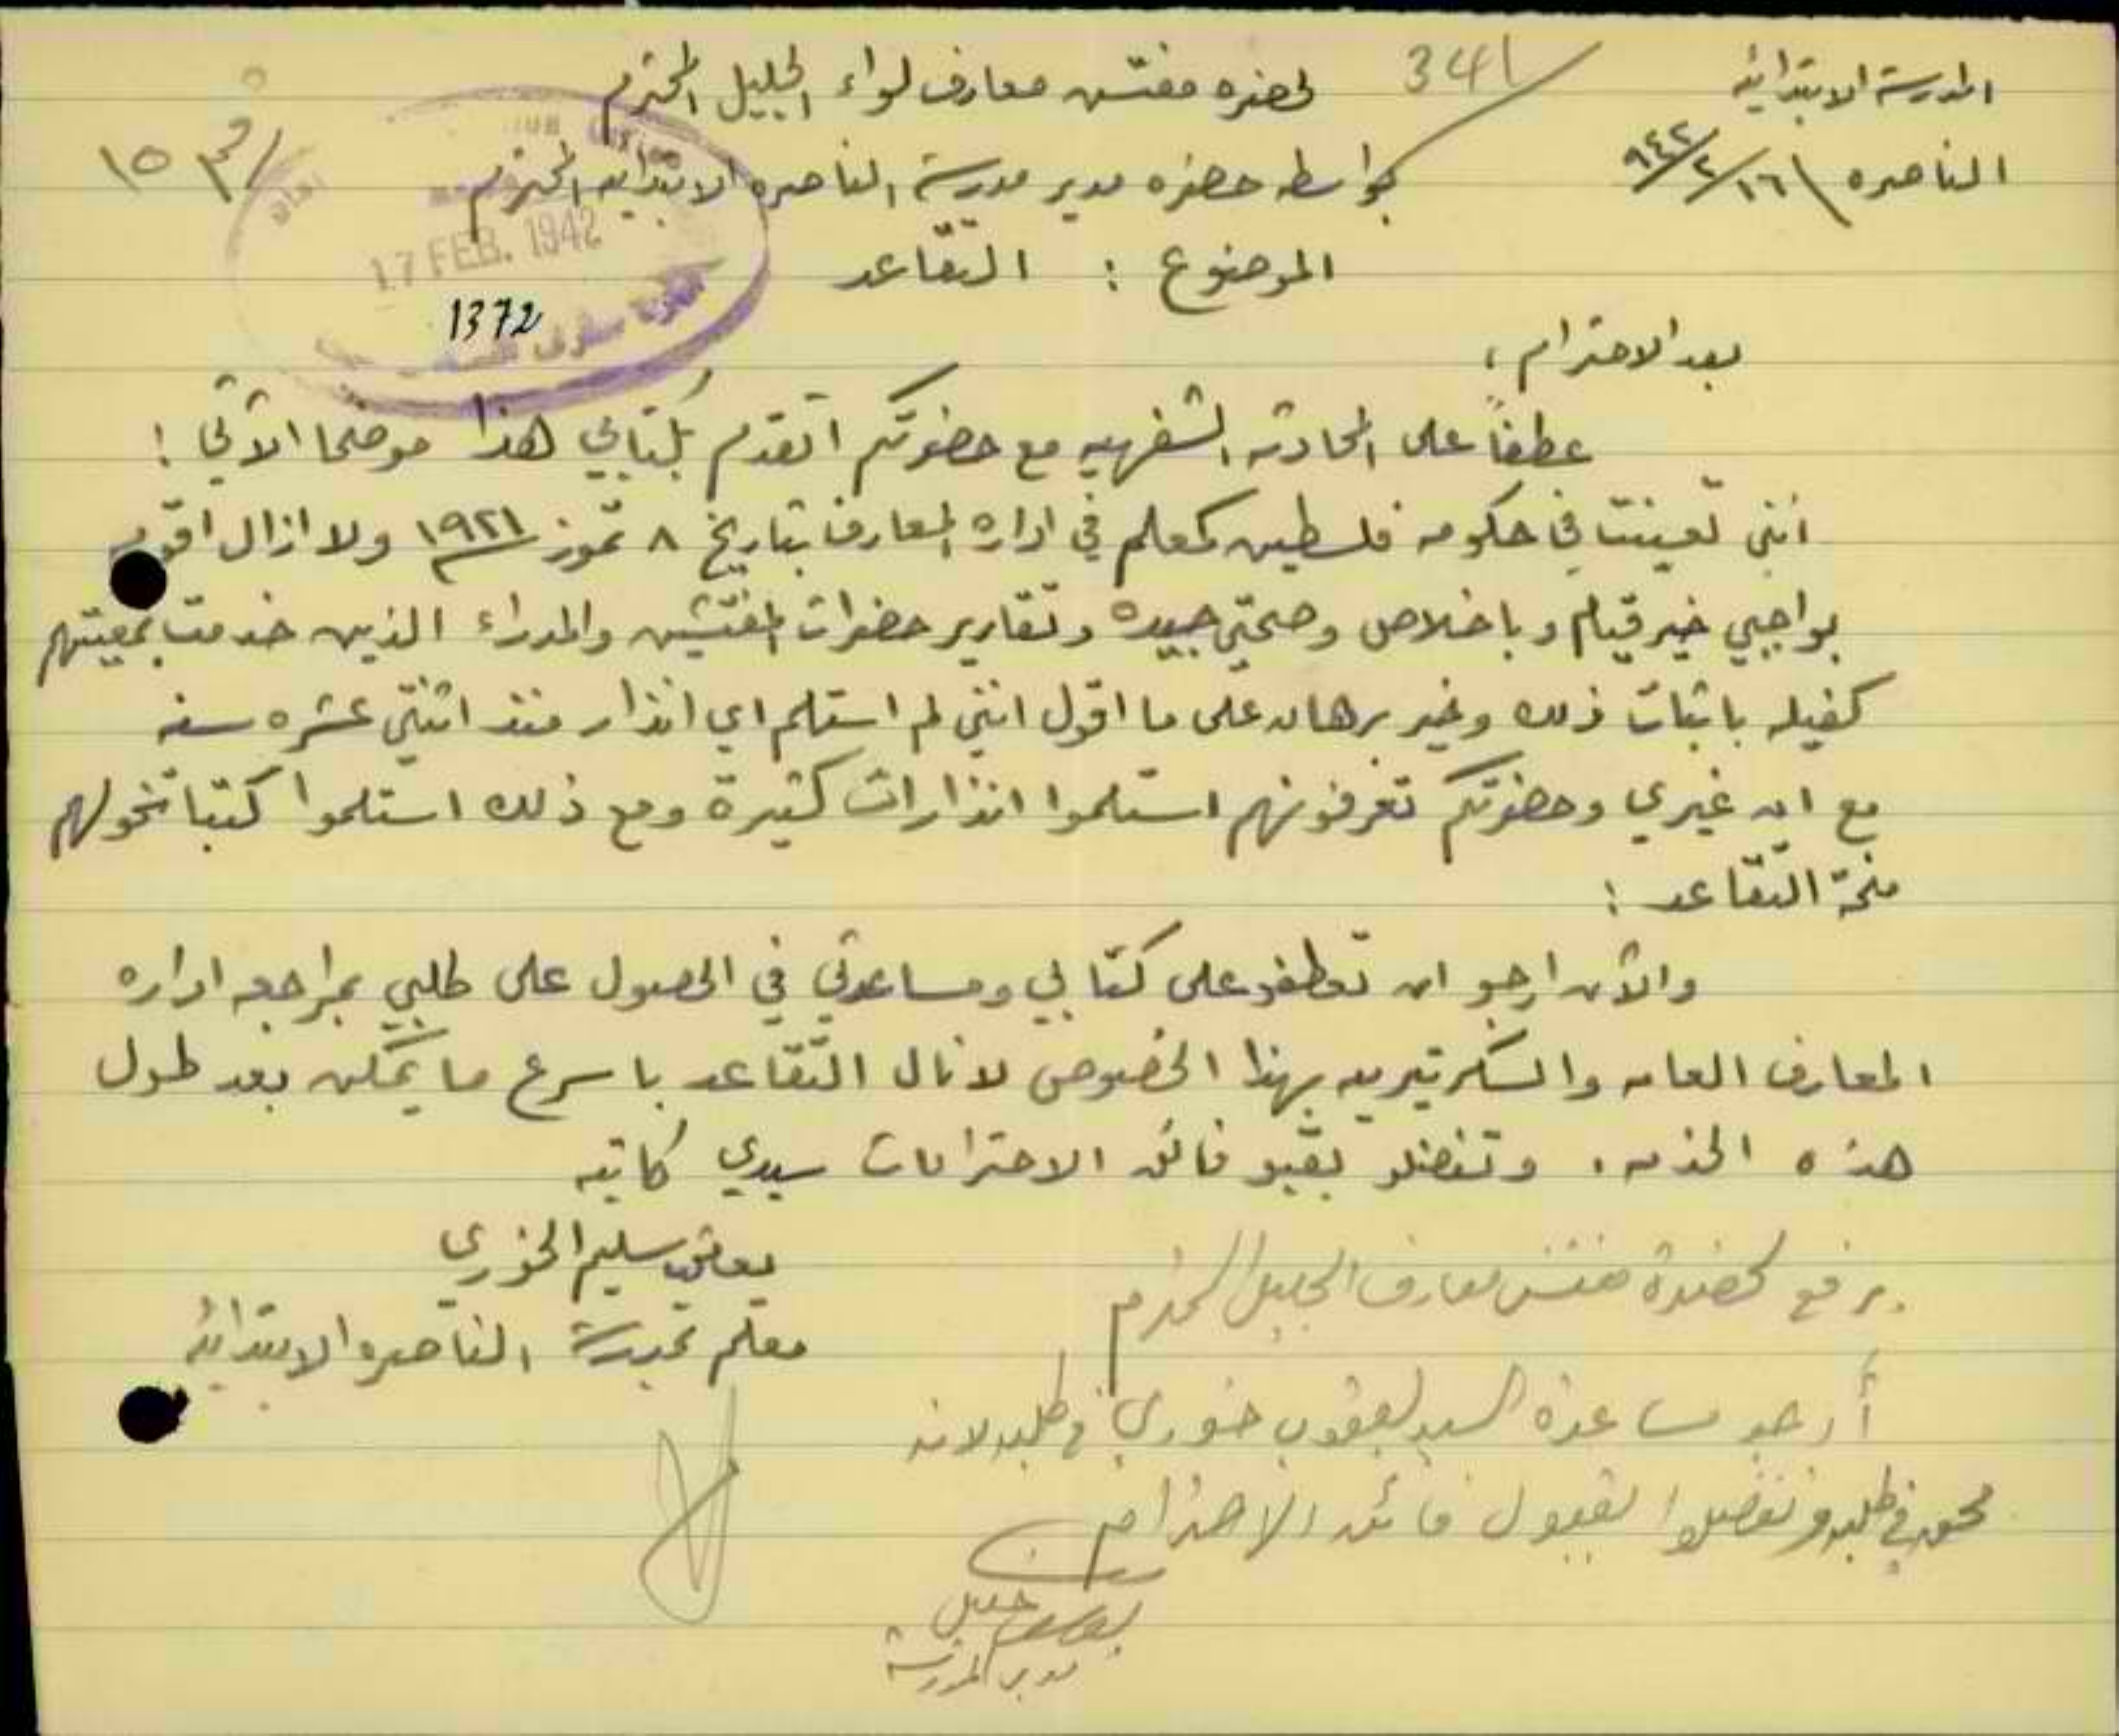 المدرسة الابتدائيه
الناصره ١٦/٢/٩٤٢
341
لحضره مفتش معارف لواء الجليل المحترم
بواسطه حضره مدير مدرسة الناصره الابتدائيه المحترم
١٥
17 FEB. 1942
1372
الموضوع : التقاعد
بعد الاحترام ،
عطفاً على المحادثه الشفهيه مع حضرتكم اتقدم بكتابي هذا موضحا الآتي :
انني تعينت في حكومه فلسطين كمعلم في اداره المعارف بتاريخ ٨ تموز ١٩٢١ ولا ازال اقوم
بواجبي خير قيام وباخلاص وصحتي جيده وتقارير حضرات المفتشين والمدراء الذين خدمت بمعيتهم
كفيله باثبات ذلك وخير برهان على ما اقول انني لم استلم اي انذار منذ اثنتي عشره سنه
مع ان غيري وحضرتكم تعرفونهم استلموا انذارات كثيرة ومع ذلك استلموا كتبا تخولهم
منحة التقاعد :
والآن ارجو ان تعطفو على كتابي ومساعدتي في الحصول على طلبي بمراجعه اداره
المعارف العامه والسكرتيريه بهذا الخصوص لانال التقاعد باسرع ما يمكن بعد طول
هذه الخدمه . وتفضلو بقبو فائق الاحترامات سيدي كاتبه
يعقوب سليم الخوري
معلم بمدرسة الناصره الابتدائيه
يرفع لحضرة مفتش معارف الجليل المحترم
أرجو مساعدة السيد يعقوب خوري في طلبه لانه
محق في طلبه وتفضلوا بقبول فائق الاحترام
يوسف خليل
مدير المدرسة